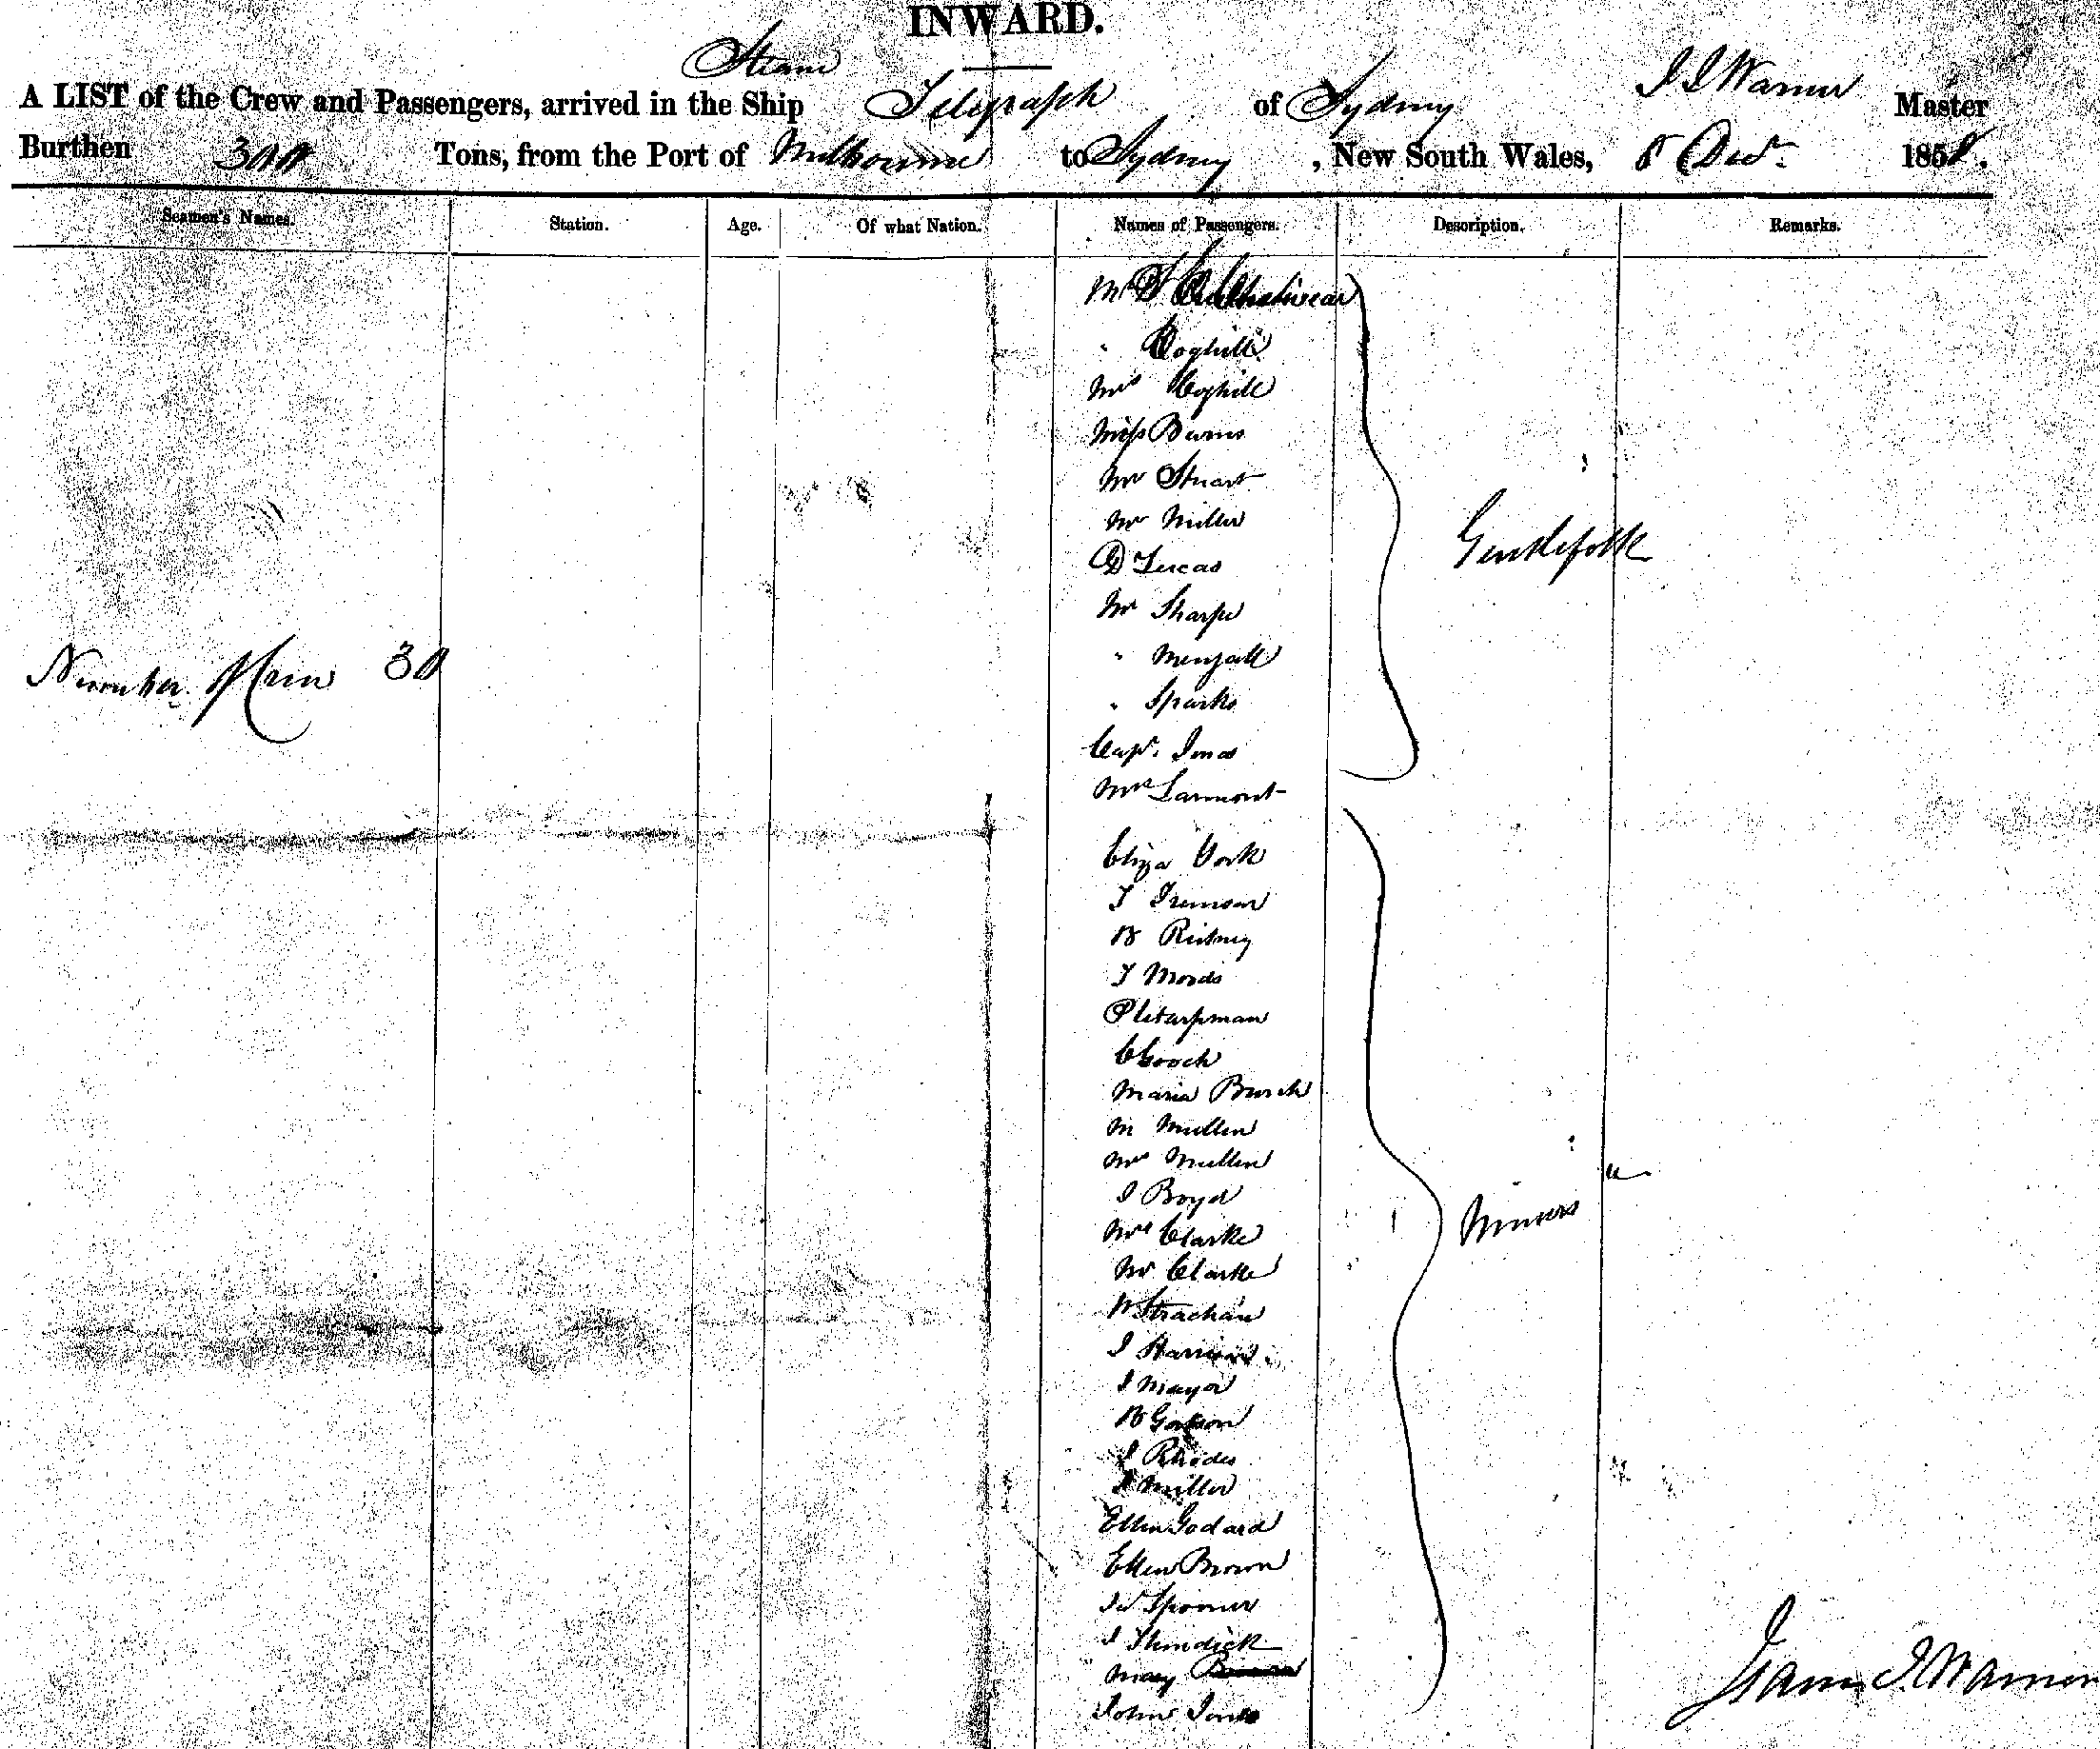 INWARD.
Steam
A LIST of the Crew and Passengers, arrived in the Ship Telegraph of Sydney J J Warner Master
Burthen 300 Tons, from the Port of Melbourne to Sydney, New South Wales, 8 Decr. 1858.
Seamen's Names. Station. Age. Of what Nation. Names of Passengers. Description. Remarks.
Mr
" Coghill
Mrs Coghill
Miss Burns
Mr Stuart
Mr Miller
D Lucas
Gentlefolk
Mr Sharpe
" 
Number Crew 30
" Sparks
Capt. Jones
Mrs Larmont
Eliza York
T
B
T
P
C Gooch
Maria
M Mullen
Mrs Mullen
J Boyd
Miners
Mrs Clarke
Mr Clarke
W Strachan
J
J Mayor
J Rhodes
Miller
Ellen Godard
Ellen Brown
J W Spooner
J
Mary
John Jones
James J Warner